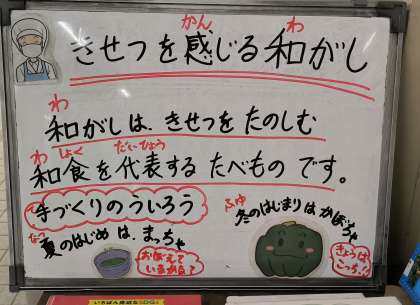 かん わ
きせつを感じる和がし
わ
和がしは、きせつをたのしむ
わ しょく だいひょう
和食を代表するたべものです。
手づくりのういろう
なつ
夏のはじめは、まっちゃ
おぼえて
いるかな?
ふゆ
冬のはじまりはかぼちゃ
きょうは
こっち!